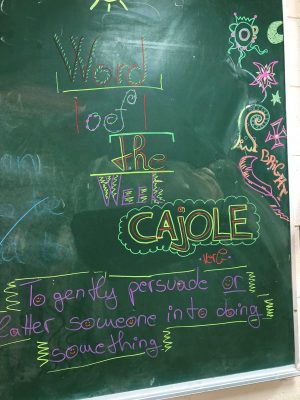 Word
of
The
WEEK
CAJOLE
BRIGHT
To gently persuade or
latter someone into doing
something